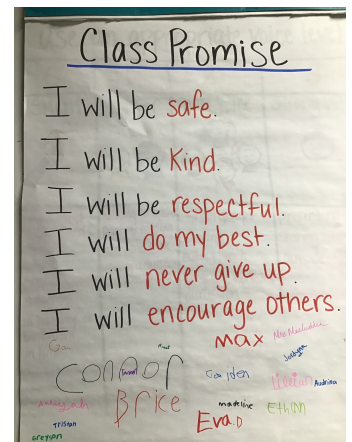 Class Promise
I will be safe.
I will be Kind.
I will be respectful.
I will do my best.
I will never give up.
I will encourage others.
max
Connor
Caiden
Audrina
Brice
madeline
Ethan
Eva.D
Tristan
Greyson